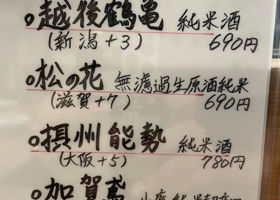 ○越後鶴亀 純米酒
(新潟+3) 690円
○松の花 無濾過生原酒純米
(滋賀+7) 690円
○摂州能勢 純米酒
(大阪+5) 780円
○加賀鳶 山廃純米超辛口